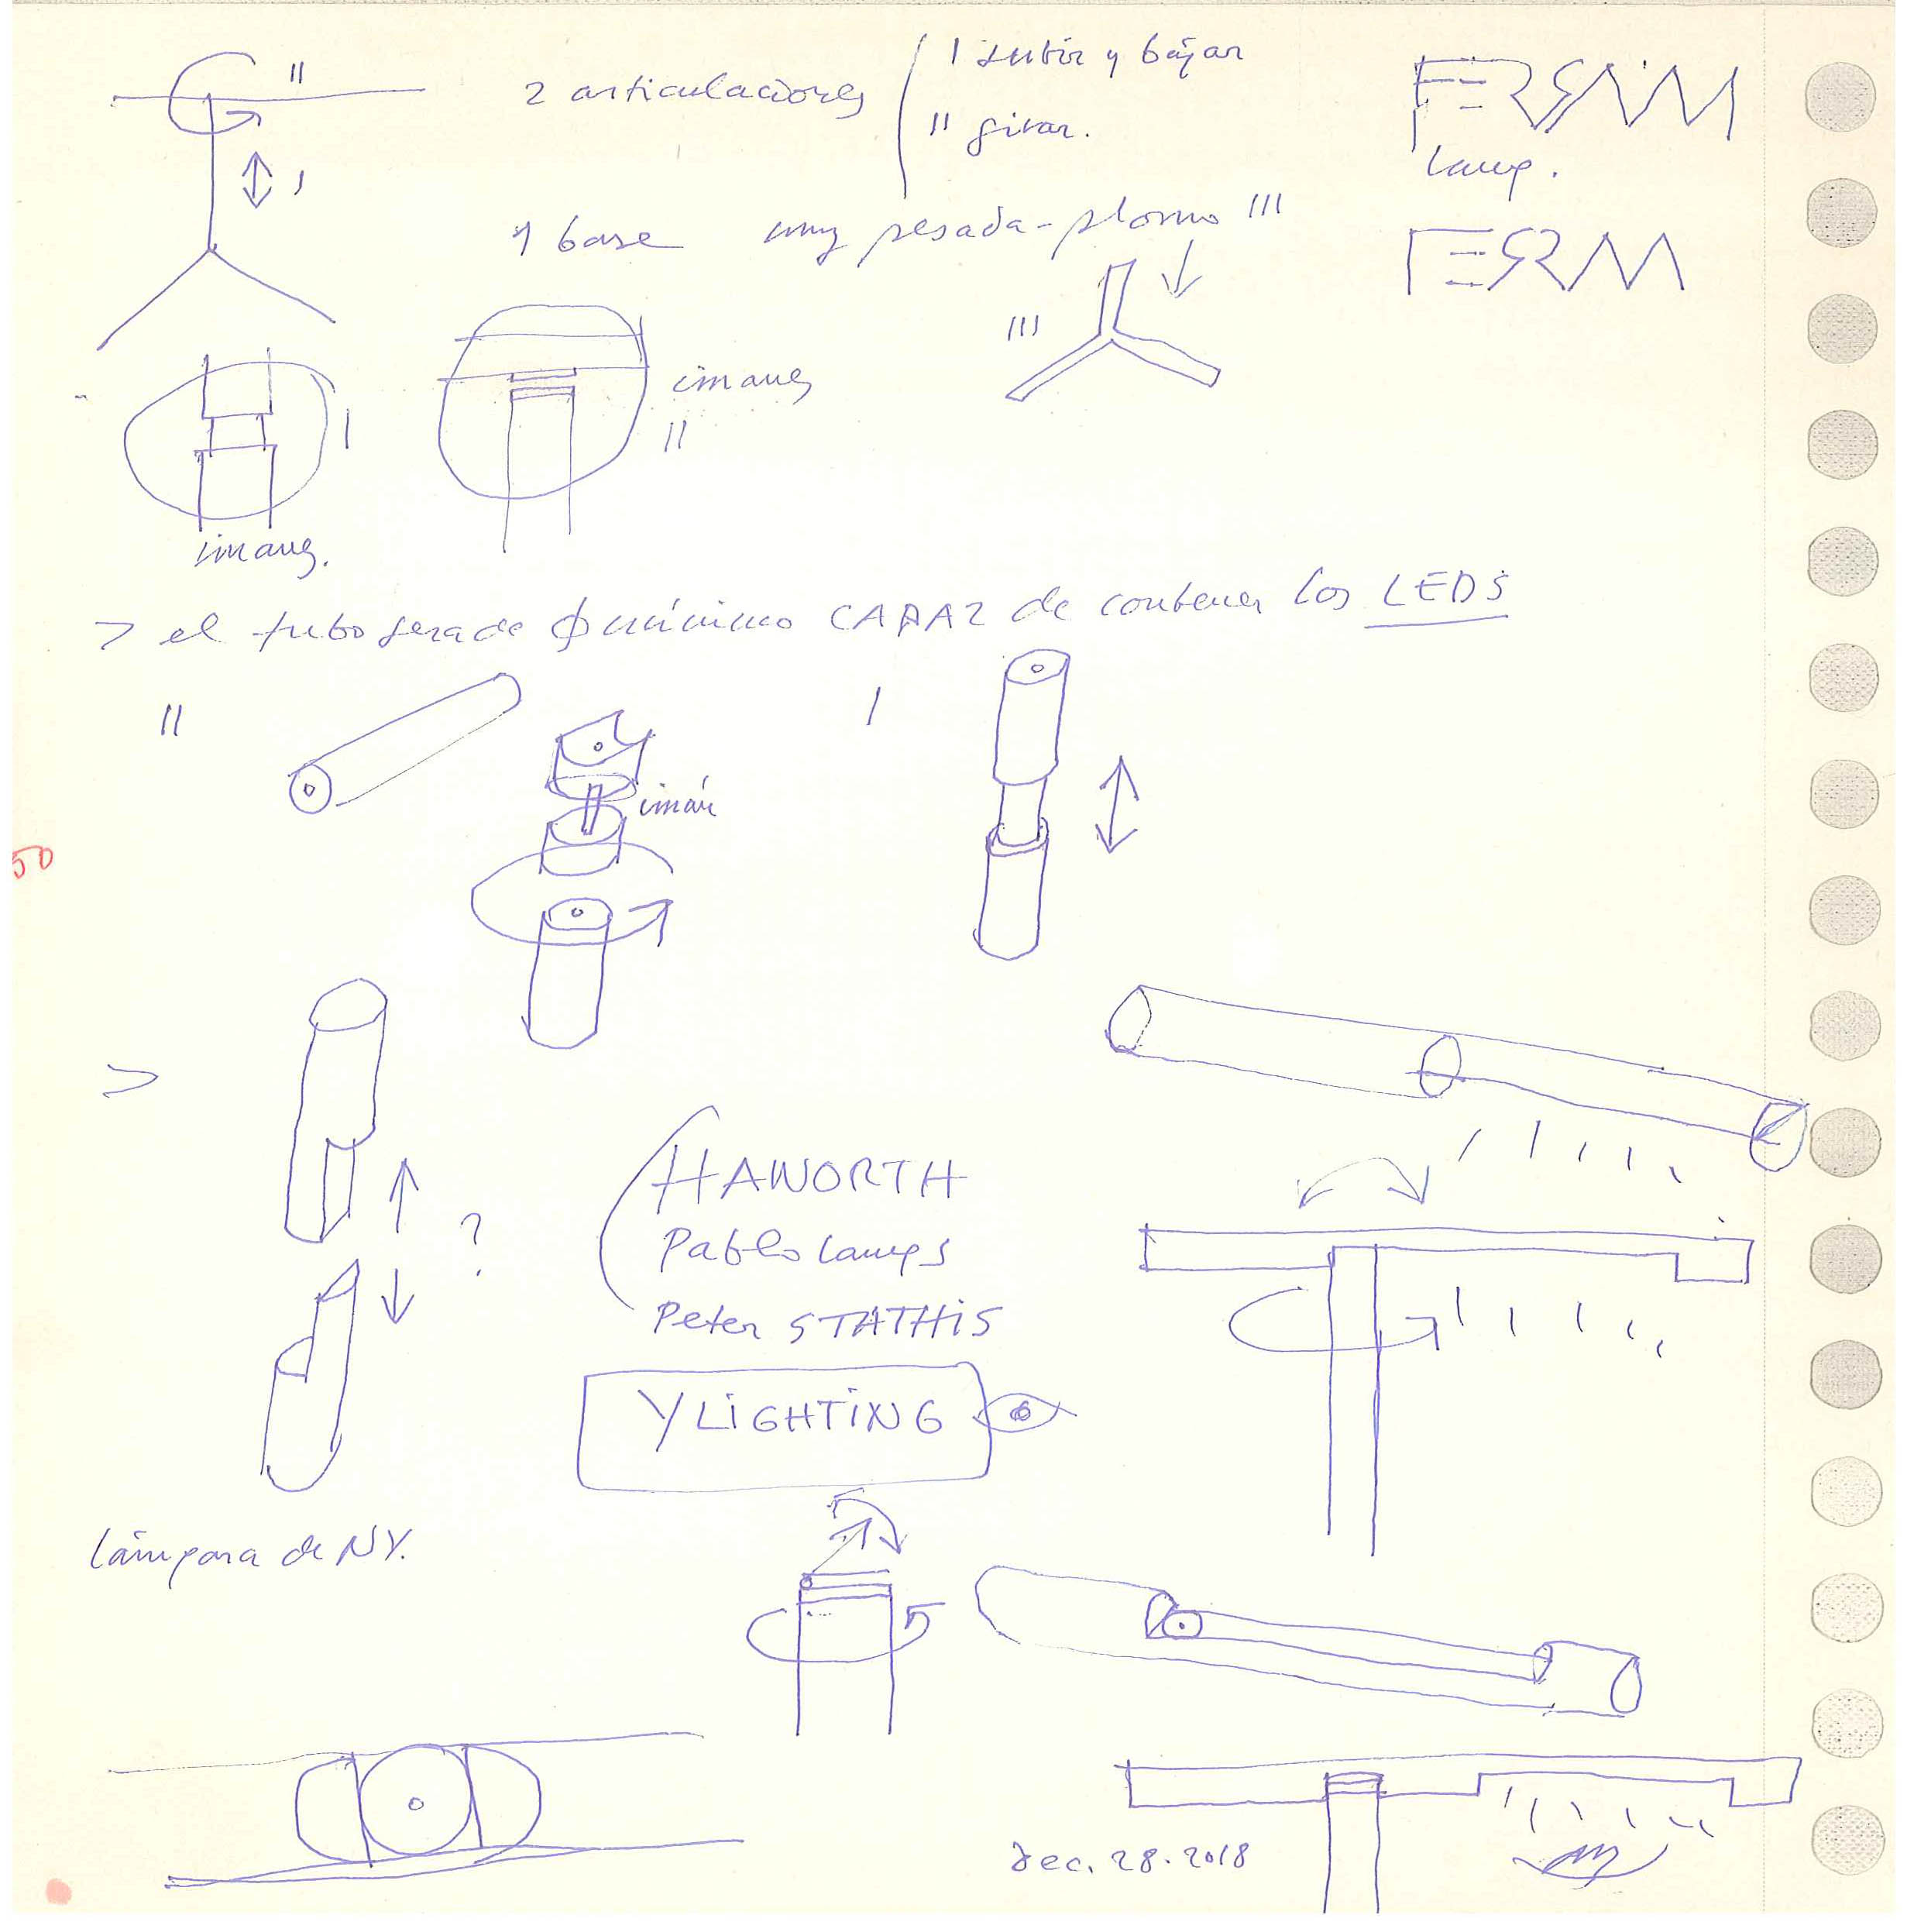 II
2 articulaciones
I subir y bajar
II girar.
I
1 base muy pesada-plomo III
III
FERSAIM
Lamp.
FERM
imanes
II
I
imanes.
> el tubo será de ϕ mínimo CAPAZ de contener los LEDS
II
imán
I
50
>
?
HAWORTH
Pablo Lamps
Peter STATHiS
YLiGHTiNG
Lámpara de NY.
dec. 28. 2018